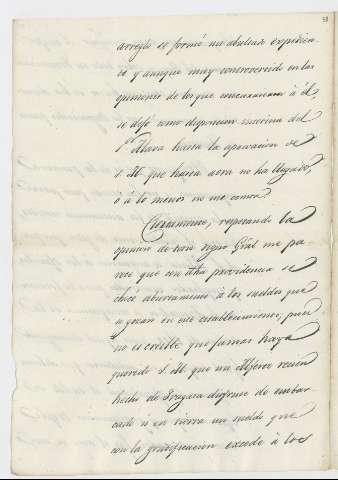 arreglo se formó un abultado expedien-
te y aunque muy controvertido en las
opiniones de los que concurrieron á él,
se dejó como disposicion interina del
Sr. Alava hasta la aprovacion de
S. M. que hasta aora no ha llegado,
ó á lo menos no me consta.
Ciertamente, respetando la
opinion de tan digno Gral. me pa-
rece que con dha providencia se
abiertamente á los sueldos que
se gozan en ese establecimiento, pues
no es creible que jamas haya
querido S. M. que un Alferez recien
hecho de Fragata disfrute de embar-
cado ó en tierra un sueldo que
con la gratificacion excede á los